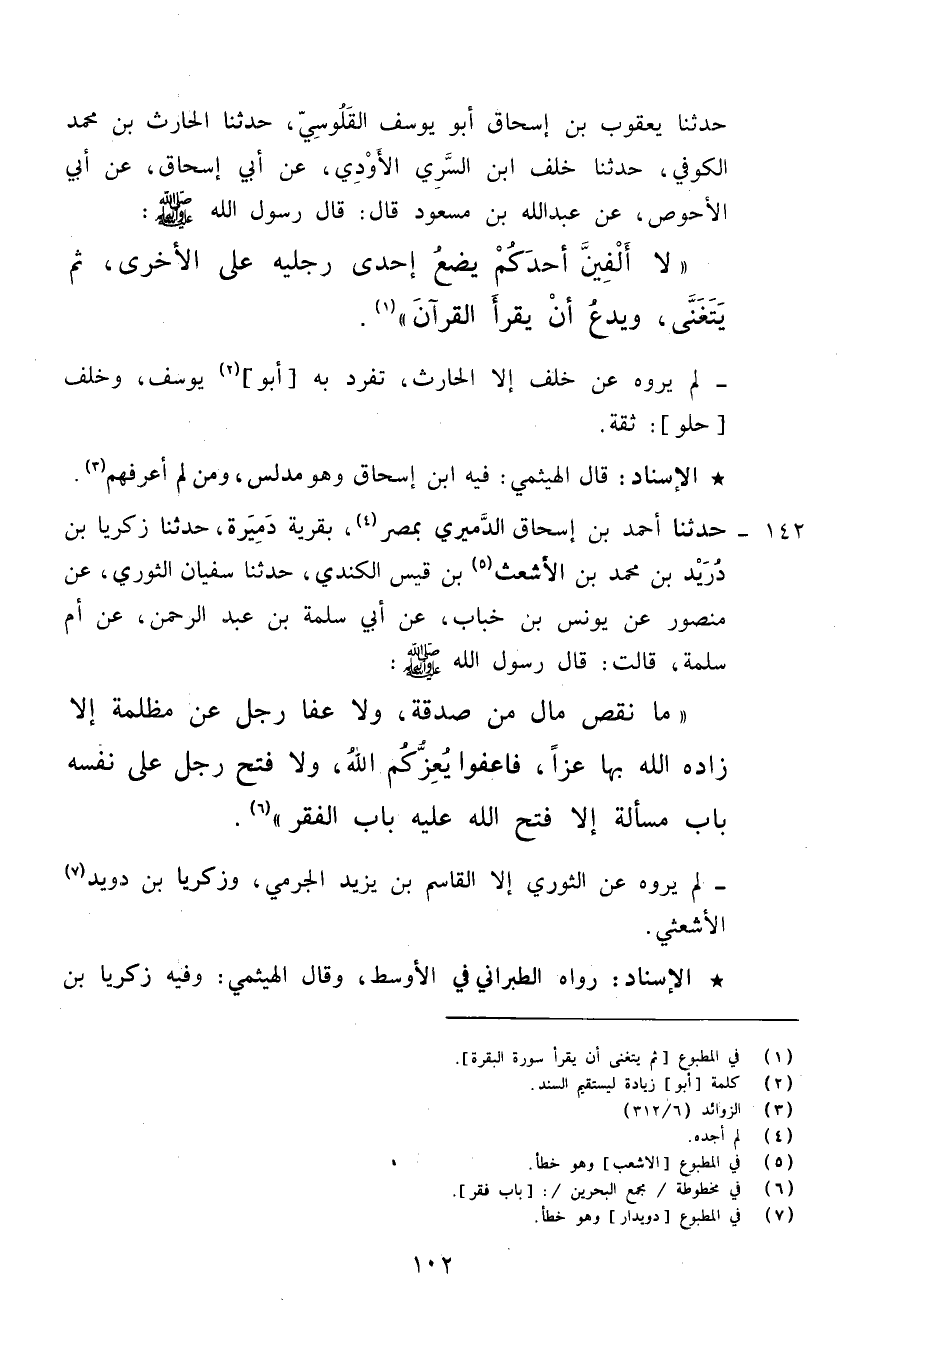 حدثنا يعقوب بن إسحاق أبو يوسف القَلُوسِيّ، حدثنا الحارث بن محمد
الكوفي، حدثنا خلف ابن السَّرِي الأَوْدِي، عن أبي إسحاق، عن أبي
الأحوص، عن عبدالله بن مسعود قال: قال رسول الله ﷺ:
« لا أَلْفِينَّ أحدَكُمْ يضعُ إحدى رجليه على الأخرى، ثم
يَتَغَنَّى، ويدعُ أنْ يقرأَ القرآنَ »(١).
ـ لم يروه عن خلف إلا الحارث، تفرد به [أبو](٢) يوسف، وخلف
[حلو]: ثقة.
★ الإسناد: قال الهيثمي: فيه ابن إسحاق وهو مدلس، ومن لم أعرفهم(٣).
١٤٢ ـ حدثنا أحمد بن إسحاق الدَّميري بمصر(٤)، بقرية دَمِيَرة، حدثنا زكريا بن
دُرَيْد بن محمد بن الأشعث(٥) بن قيس الكندي، حدثنا سفيان الثوري، عن
منصور عن يونس بن خباب، عن أبي سلمة بن عبد الرحمن، عن أم
سلمة، قالت: قال رسول الله ﷺ:
« ما نقص مال من صدقة، ولا عفا رجل عن مظلمة إلا
زاده الله بها عزاً، فاعفوا يُعِزُّكُم اللهُ، ولا فتح رجل على نفسه
باب مسألة إلا فتح الله عليه باب الفقر »(٦).
ـ لم يروه عن الثوري إلا القاسم بن يزيد الجرمي، وزكريا بن دويد(٧)
الأشعثي.
★ الإسناد: رواه الطبراني في الأوسط، وقال الهيثمي: وفيه زكريا بن
(١) في المطبوع [ثم يتغنى أن يقرأ سورة البقرة].
(٢) كلمة [أبو] زيادة ليستقيم السند.
(٣) الزوائد (٣١٢/٦)
(٤) لم أجده.
(٥) في المطبوع [الاشعب] وهو خطأ.
(٦) في مخطوطة / مجمع البحرين /: [باب فقر].
(٧) في المطبوع [دويدار] وهو خطأ.
١٠٢